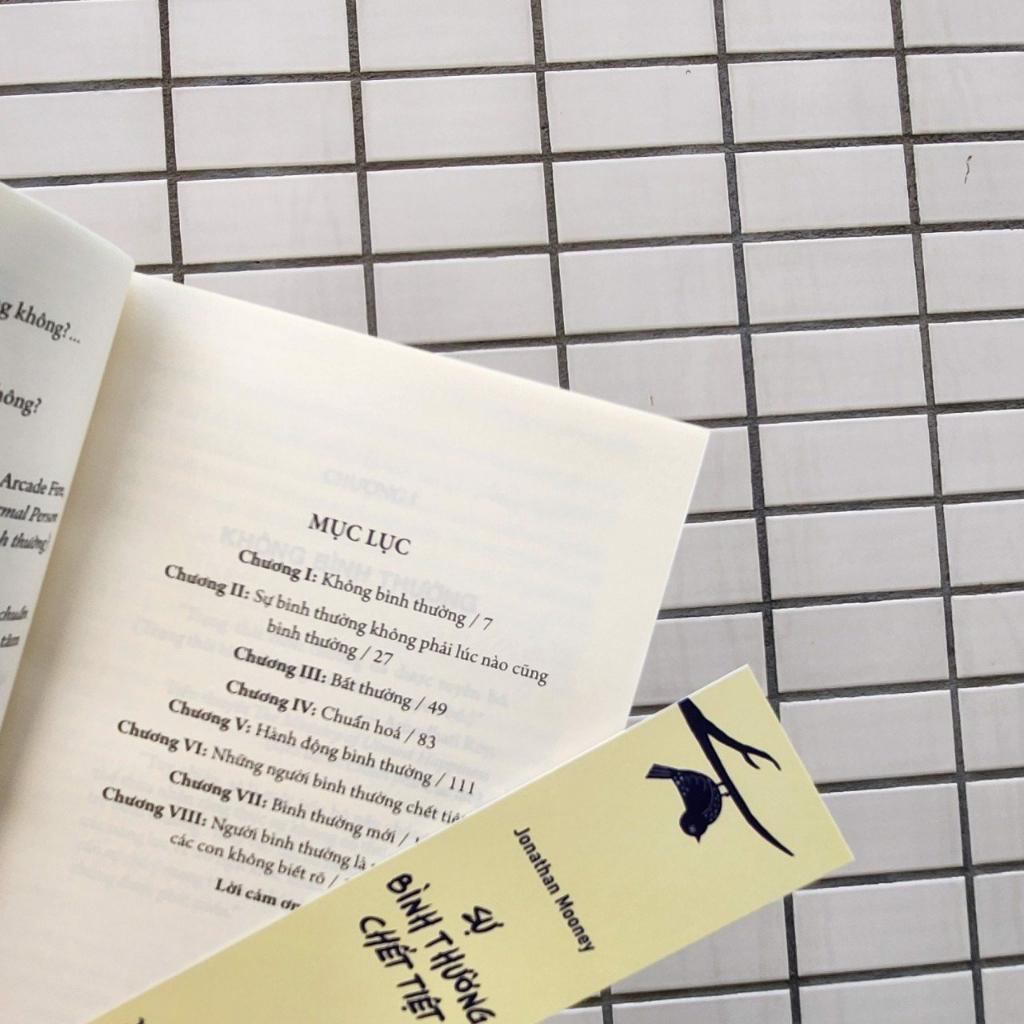 g không?...
hông?
Arcade Fire,
rmal Person
h thường?
chuẩn
tâm
MỤC LỤC
Chương I: Không bình thường / 7
Chương II: Sự bình thường không phải lúc nào cũng
bình thường / 27
Chương III: Bất thường / 49
Chương IV: Chuẩn hoá / 83
Chương V: Hành động bình thường / 111
Chương VI: Những người bình thường chết
Chương VII: Bình thường mới /
Chương VIII: Người bình thường là
các con không biết rõ /
Lời cảm ơn
Jonathan Mooney
SỰ
BÌNH THƯỜNG
CHẾT TIỆT